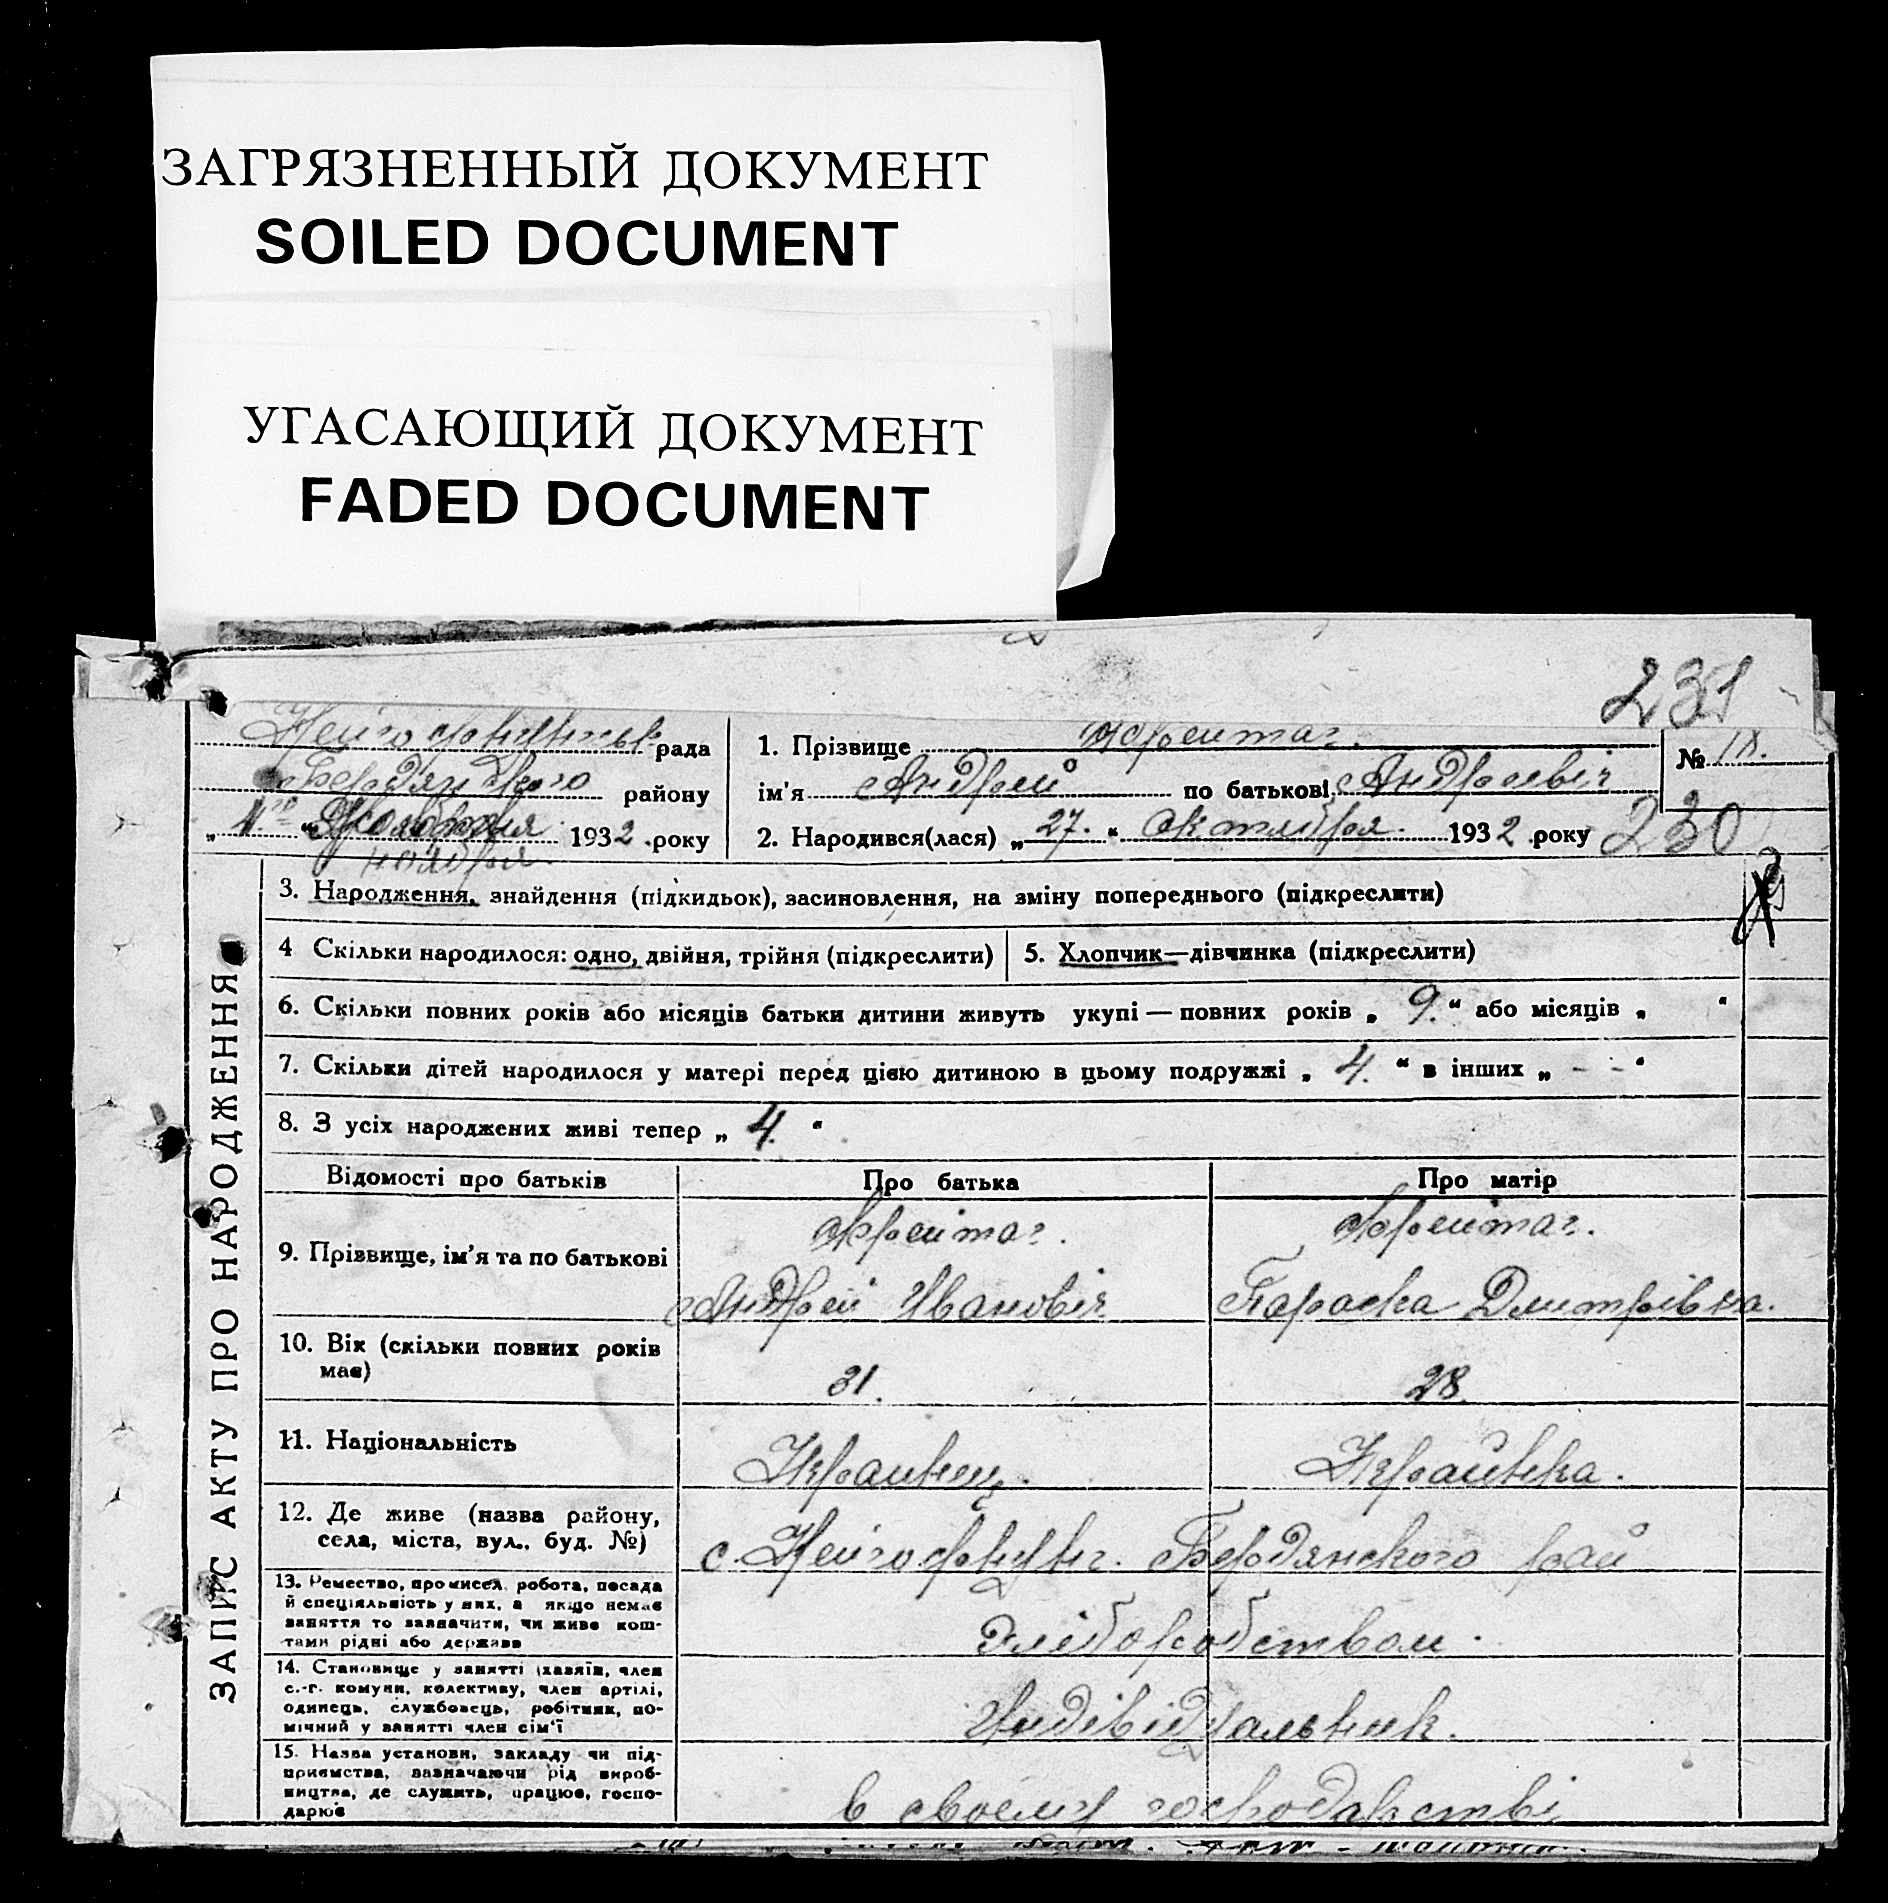 ЗАГРЯЗНЕННЫЙ ДОКУМЕНТ
SOILED DOCUMENT
УГАСАЮЩИЙ ДОКУМЕНТ
FADED DOCUMENT
231
рада
Бердянського району
1932 року
ноября
1. Прізвище Фрейтаг.
ім'я Андрей по батькові Андреевіч
№ 18.
2. Народився(лася) „27.“ Октября 1932 року
230
ЗАПИС АКТУ ПРО НАРОДЖЕННЯ
3. Народження, знайдення (підкидьок), засиновлення, на зміну попереднього (підкреслити)
4 Скільки народилося: одно, двійня, трійня (підкреслити)
5. Хлопчик—дівчинка (підкреслити)
6. Скільки повних років або місяців батьки дитини живуть укупі — повних років „ 9. “ або місяців „ “
7. Скільки дітей народилося у матері перед цією дитиною в цьому подружжі „ 4. “ в інших „ - - “
8. З усіх народжених живі тепер „ 4. “
Відомості про батьків
Про батька
Про матір
9. Прізвище, ім'я та по батькові
Фрейтаг.
Андрей Івановіч
Фрейтаг.
Параска Дмитрівна.
10. Вік (скільки повних років
має)
31.
28.
11. Національність
Украинец.
Украінка.
12. Де живе (назва району,
села, міста, вул., буд. №)
с. Нейгофнунг. Бердянского рай
13. Ремество, промисел, робота, посада
й спеціяльність у них, а якщо немає
заняття то зазначити, чи живе кош-
тами рідні або держави
Хліборобством.
14. Становище у занятті (хазяїн, член
с.-г. комуни, колективу, член артілі,
одинець, службовець, робітник, по-
мічний у занятті член сім'ї
Индівідуальник.
15. Назва установи, закладу чи під-
приємства, зазначаючи рід вироб-
ництва, де служить, працює, госпо-
дарює
в своему господарстві